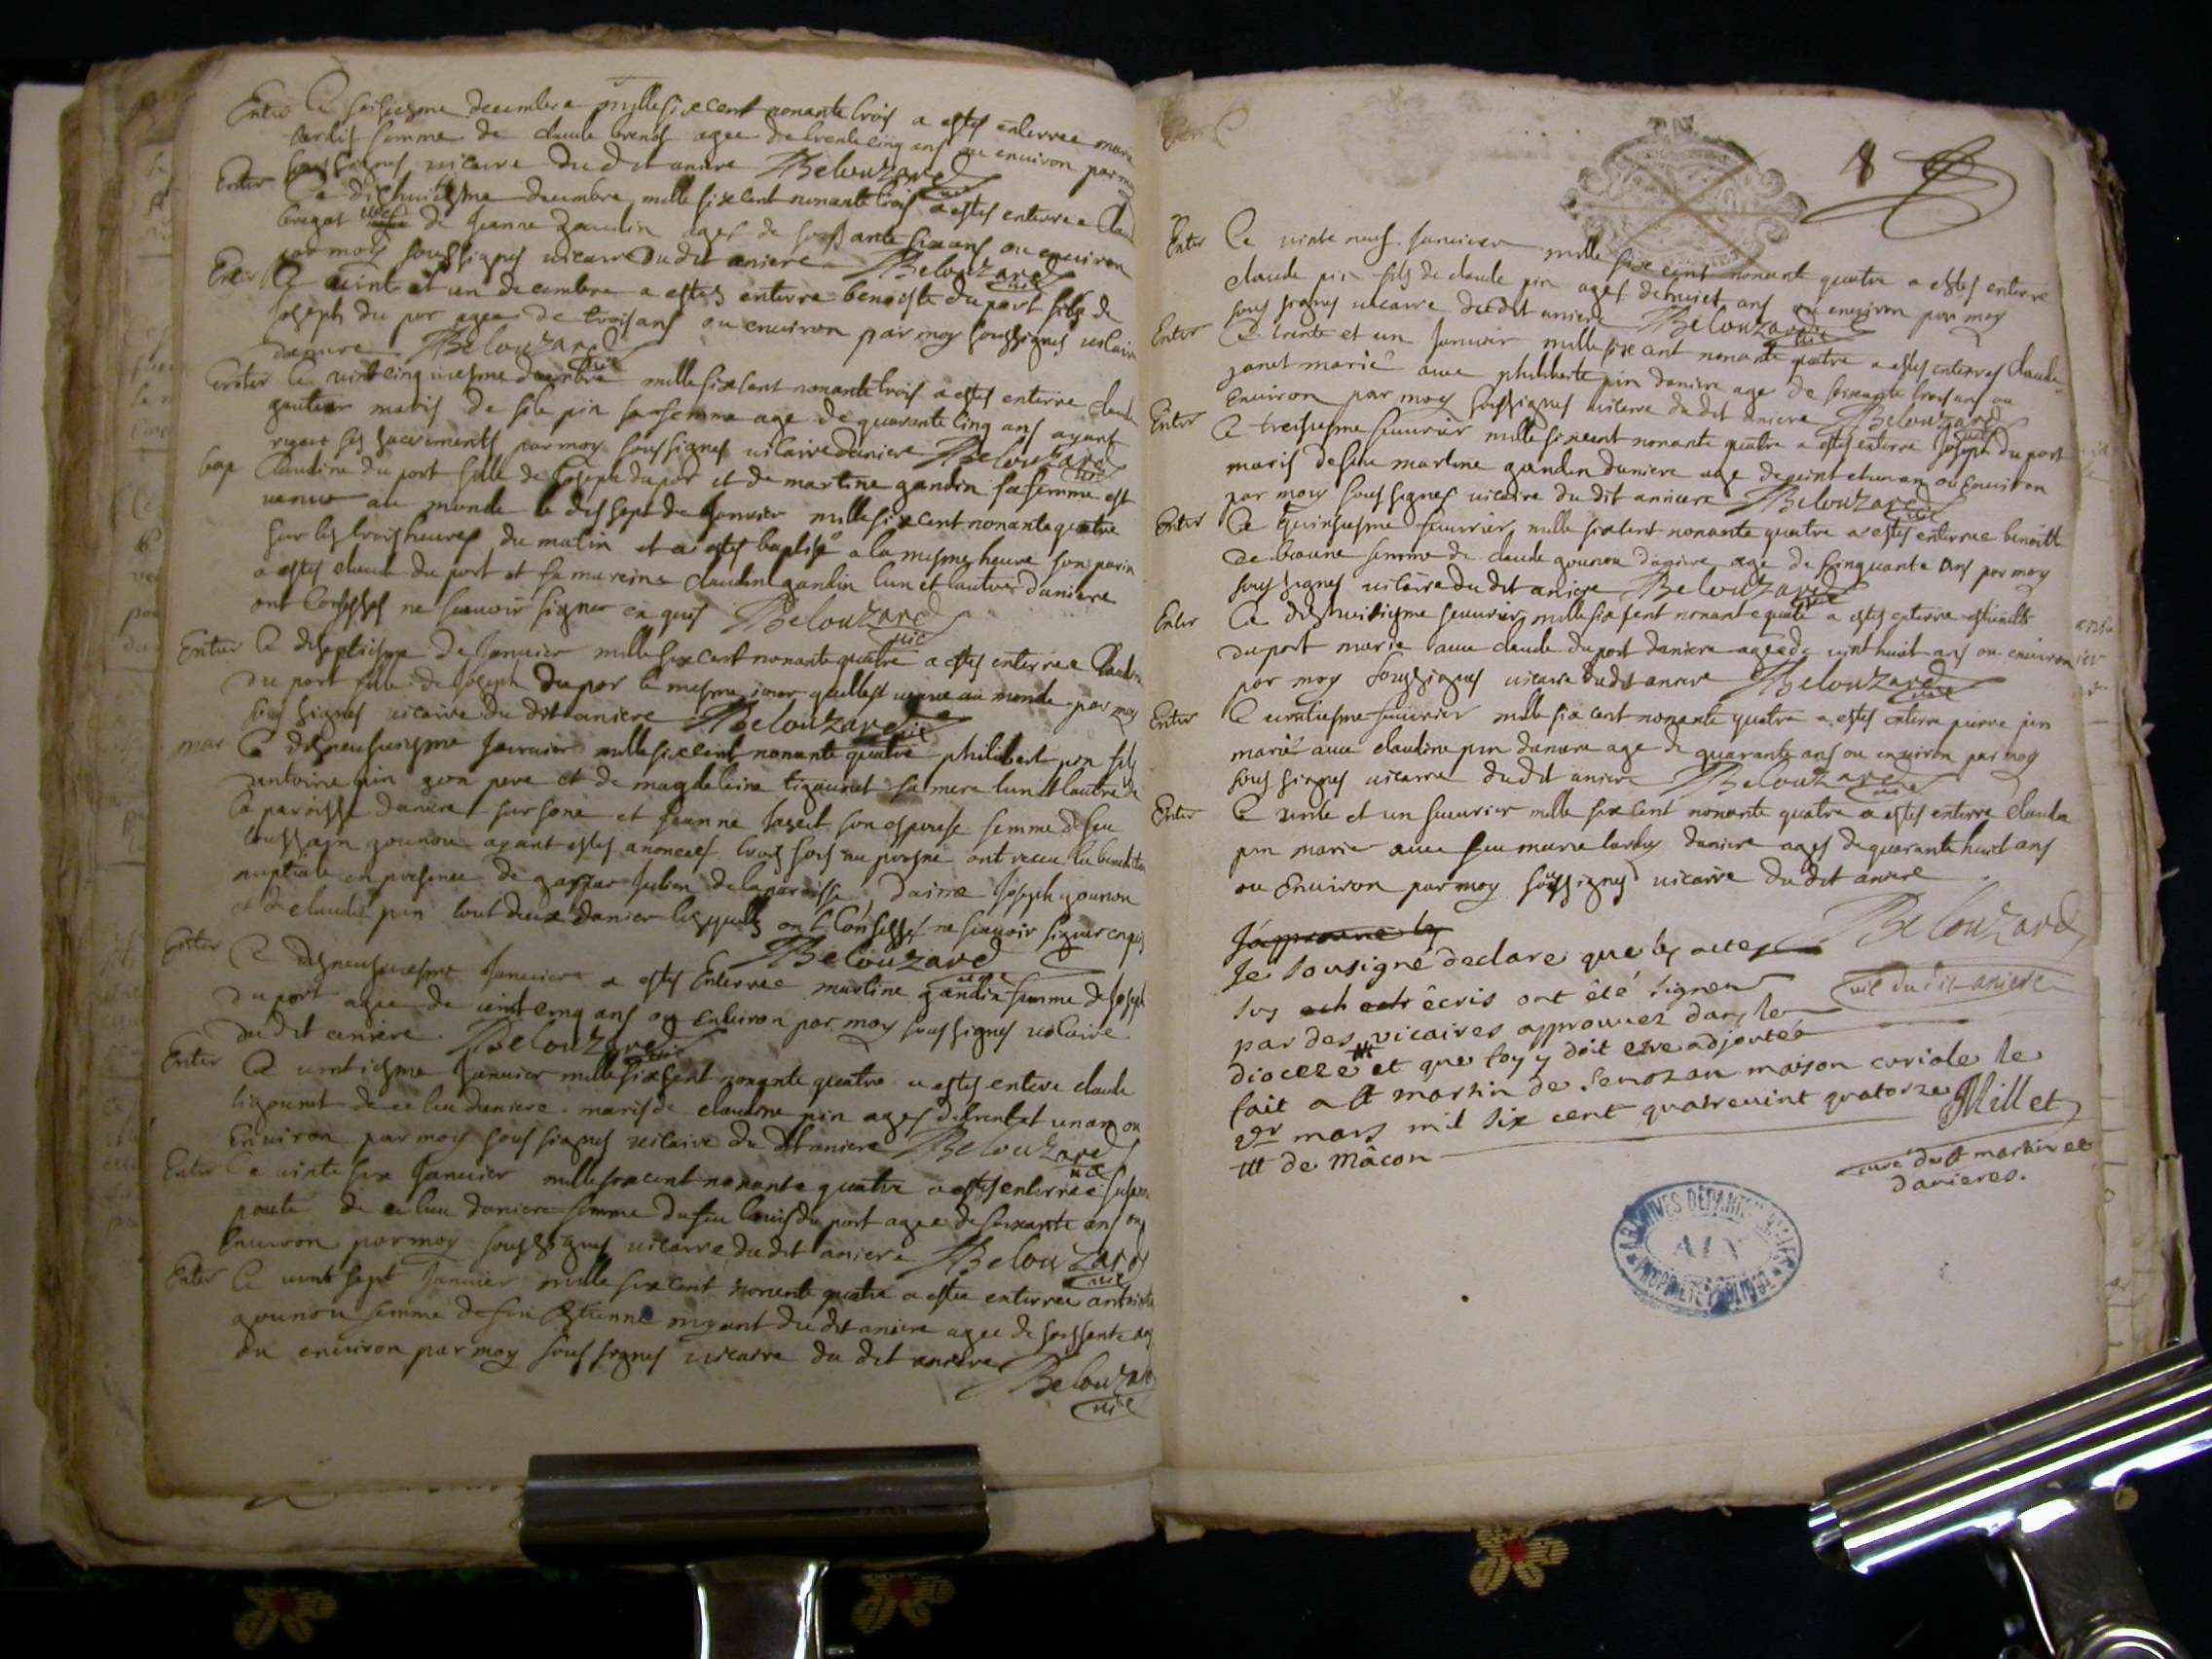 Enter Ce seisiesme decembre mille sixcent nonante trois a estes enterree marie
tardis femme de claude brend agee de trente cinq ans ou environ par moy
soussignes vicaire du dit aniere Belouzard vic
Enter Ce dishuitiesme decembre mille sixcent nonante trois a estes enterre Claude
de Jeanne gandin ages de soissante six ans ou environ
par moy soussignes vicaire du dit aniere Belouzard vic
Enter Ce vinte et un decembre a estes enterre benoiste du port fils de
Joseph du por agee de trois ans ou environ par moy soussignes vicaire
daniere Belouzard vic
Enter Ce vint cinquiesme decembre mille sixcent nonante trois a estes enterre claude
gautier maris de pin sa femme age de quarante cinq ans ayant
reçeus ses sacrements par moy soussignes vicaire daniere Belouzard vic
bap Claudine du port fille de Joseph du por et de martine gandin sa femme est
venue au monde le dis sept de Janvier mille sixcent nonante quatre
sur les trois heures du matin et a estes baptisé a la mesme heure son parin
a estes claude du port et sa mareine claudine gandin lun et lautre daniere
ont confesses ne scavoir signer enquis Belouzard vic
Enter Ce diseptiesme de Janvier mille sixcent nonante quatre a estes enterree Claudine
du port fille de Joseph du por le mesme iour quellest venue au monde par moy
soussignes vicaire du dit aniere Belouzard vic
mar Ce disneufviesme Janvier mille sixcent nonante quatre philibert pin fils
dantoine pin son pere et de magdeleine tigounet sa mere lun et lautre de
la paroisse daniere sur sone et Jeanne son espouse femme de feu
toussain gounou ayant estes anonces trois fois au prosne ont receu la benediction
nuptiale en presence de gaspar Julien de la paroisse daime Joseph gounon
et de claude pin tout deux danier lesquels ont confesses ne scavoir signer enquis
Belouzard vic
Enter Ce disneufviesme Janvier a estes Enterree martine gandin femme de Joseph
du port agee de vint cinq ans ou environ par moy soussignes vicaire
du dit aniere Belouzard vic
Enter Ce vintiesme Janvier mille sixcent nonante quatre a estes entere claude
tigounet de ce lieu daniere maris de claudine pin ages de trente et un an ou
Environ par moy soussignes vicaire du dit aniere Belouzard vic
Enter Ce vinte six Janvier mille sixcent nonante quatre a estes enterree
de ce lieu daniere femme du feu louis du port agee de soixante ans ou
Environ par moy soussignes vicaire du dit aniere Belouzard vic
Enter Ce vint sept Janvier mille sixcent nonante quatre a estee enterree antoinete
gounou femme de feu Estienne du dit aniere agee de soissante ans
ou environ par moy soussignes vicaire du dit aniere
Belouzard
vic
8
Enter Ce vinte neuf Janvier mille sixcent nonante quatre a estes enterre
claude pin fils de claude pin ages de huict ans ou environ par moy
soussignes vicaire du dit aniere Belouzard vic
Enter Ce trente et un Janvier mille sixcent nonante quatre a estes enterres Claude
janet marié avec philiberte pin daniere age de soixante trois ans ou
Environ par moy soussignes vicaire du dit aniere Belouzard vic
Enter Ce treisiesme feuvrier mille sixcent nonante quatre a estes enterre Joseph du port
maris de feue martine gandin daniere age de vint et un an ou environ
par moy soussignes vicaire du dit aniere Belouzard vic
Enter Ce quinsiesme feuvrier mille sixcent nonante quatre a estes enterree benoitte
de femme de claude gounou daniere age de cinquante ans par moy
soussignes vicaire du dit aniere Belouzard vic
Enter Ce dishuitiesme feuvrier mille sixcent nonante quatre a estes enterre
du port marie avec claude du port daniere agee de vint huict ans ou environ
par moy soussignes vicaire du dit aniere Belouzard vic
Enter Ce vintiesme feuvrier mille sixcent nonante quatre a estes enterre pierre pin
marié avec claudine pin daniere age de quarante ans ou environ par moy
soussignes vicaire du dit aniere Belouzard vic
Enter Ce vinte et un feuvrier mille sixcent nonante quatre a estes enterre claude
pin marie avec feu daniere ages de quarante huict ans
ou Environ par moy soussignes vicaire du dit aniere
Belouzard
vic du dit aniere
J'approuve les
Je sousigné declare que les actes
sus êcris ont êté signez
par des vicaires approuvez dans le
dioceze et que foy y doit etre adjoutée
fait a st martin de senozan maison curiale le
mars mil six cent quatrevint quatorze Millet
de Mâcon
curé de st martin et
danieres.
ARCHIVES DEPARTEMENTALES
AIN
PROPRIETE PUBLIQUE